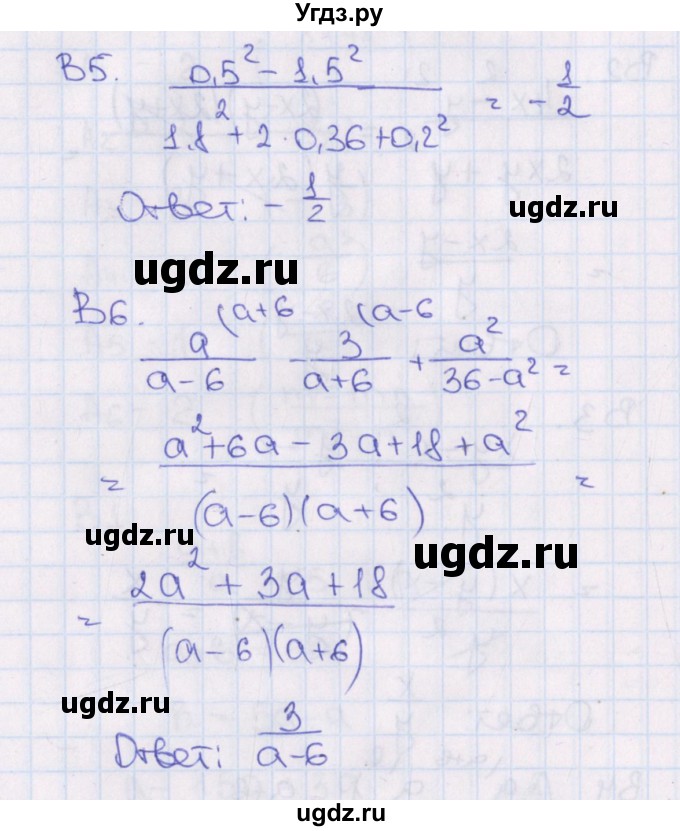 Угдз.ру
В5. (0,5² - 1,5²) / (1,8² + 2·0,36 + 0,2²) = - 1/2
ugdz.ru
Ответ: - 1/2
ugdz.ru
В6. (a+6 (a-6
a/(a-6) - 3/(a+6) + a²/(36-a²) =
= (a² + 6a - 3a + 18 + a²) / ((a-6)(a+6)) =
ugdz.ru ugdz.ru
= (2a² + 3a + 18) / ((a-6)(a+6))
ugdz.ru
ugdz.ru
Ответ: 3/(a-6)
ugdz.ru